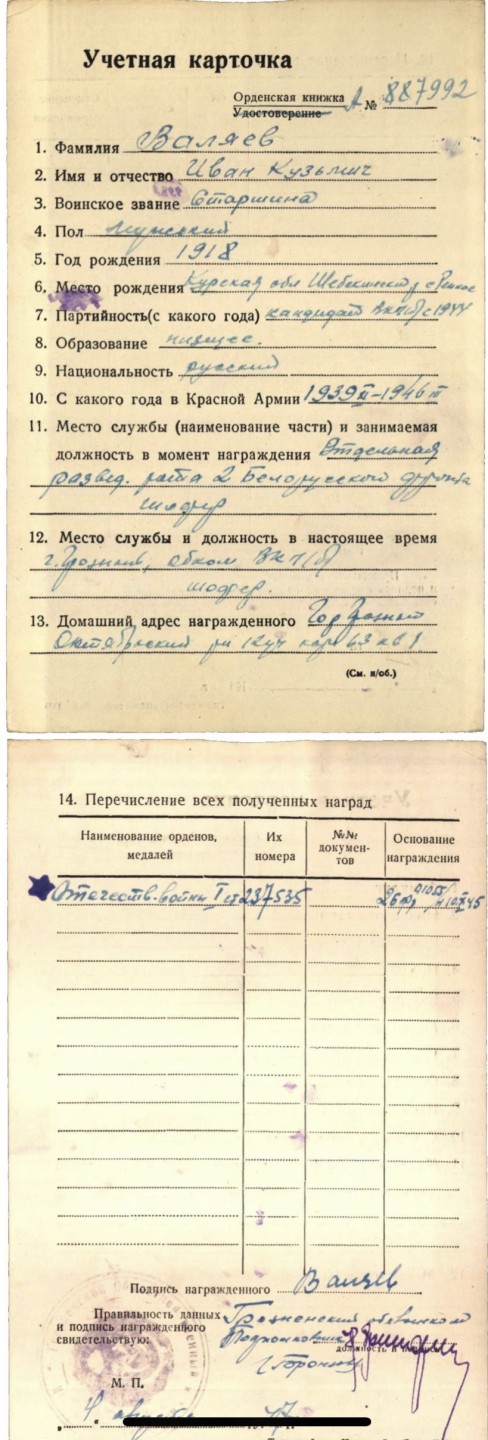 Учетная карточка
Орденская книжка А № 887992
Удостоверение
1. Фамилия Валяев
2. Имя и отчество Иван Кузьмич
3. Воинское звание Старшина
4. Пол мужской
5. Год рождения 1918
6. Место рождения Курская обл Шебекинск р с
7. Партийность(с какого года) кандидат ВКП(б) с 1944
8. Образование низшее.
9. Национальность русский
10. С какого года в Красной Армии 1939 II-1946 III
11. Место службы (наименование части) и занимаемая
должность в момент награждения Отдельная
развед. рота 2 Белорусского фронта
шофер
12. Место службы и должность в настоящее время
г. Грозный, обком ВКП(б)
шофер.
13. Домашний адрес награжденного Гор Грозный
Октябрьский 63 кв 1
(См. н/об.)
14. Перечисление всех полученных наград
Наименование орденов, медалей
Их номера
№№ документов
Основание награждения
Отечеств. войны I ст 237535
Подпись награжденного Валяев
Правильность данных Грозненский
и подпись награжденного Подполковник
свидетельствую:
должность и
М. П.
4 августа 47